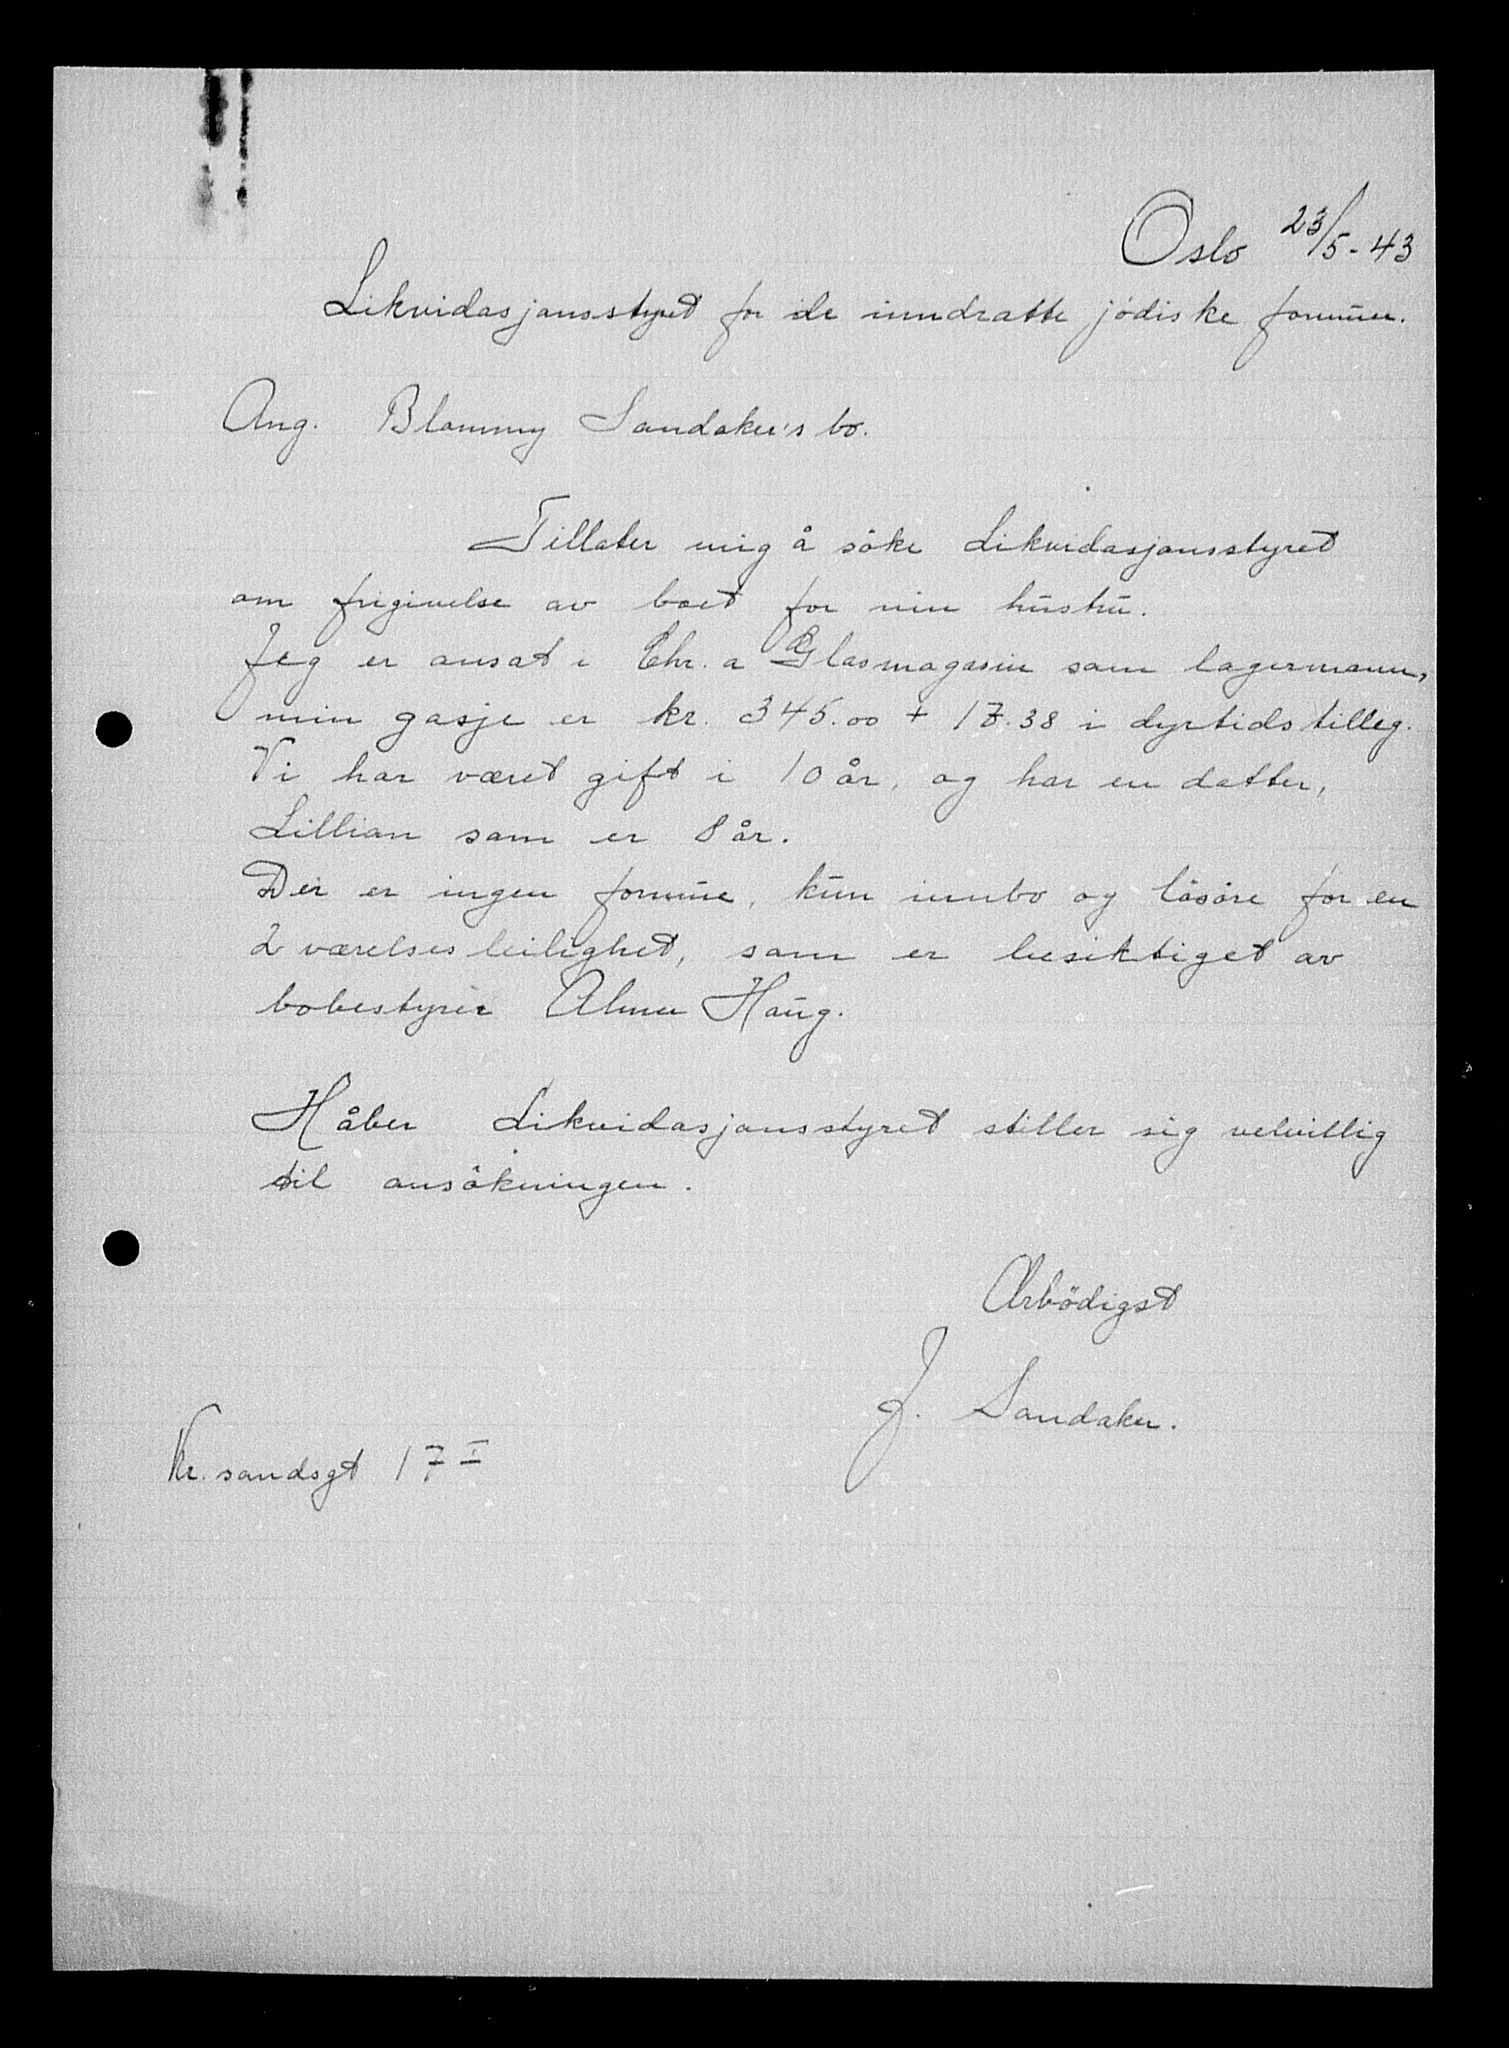 Oslo 23/5-43
Likvidasjonsstyret for de inndratte jödiske formuer.
Ang. Blammy Sandaker's bo.
Tillater mig å söke Likvidasjonsstyret
om frigivelse av boet for min hustru.
Jeg er ansat i Chr.a Glasmagasin som lagermann,
min gasje er kr. 345.00 + 17.38 i dyrtidstilleg.
Vi har været gift i 10 år, og har en datter,
Lillian som er 8 år.
Der er ingen formue, kun innbo og lösöre for en
2 værelses leilighet, som er besiktiget av
bobestyrer Haug.
Håber Likvidasjonsstyret stiller sig velvillig
til ansökningen.
Ærbödigst
J. Sandaker.
Kr.sandsgt 17 I